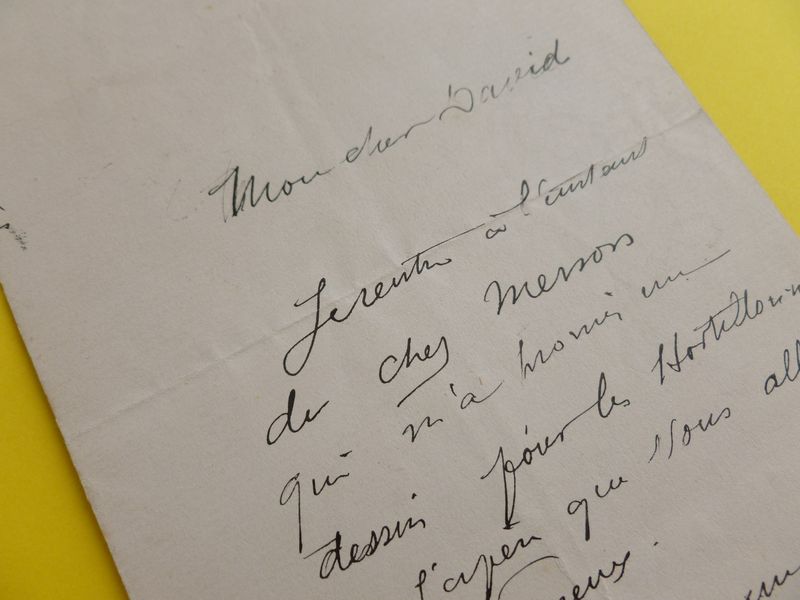 Mon cher David
Je rentre à l'instant
de chez Merson
qui m'a promis un
dessin pour les Hortillonn
que vous all
eux.